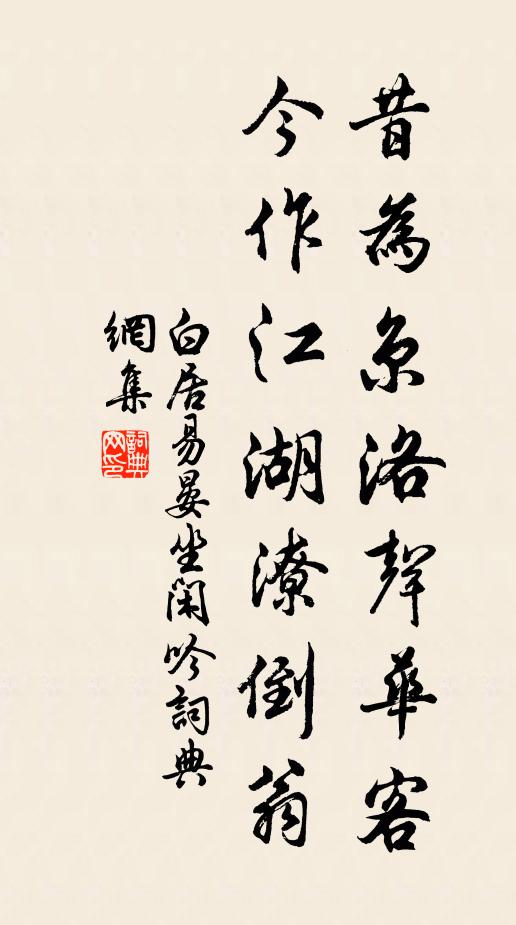 昔為京洛聲華客
今作江湖潦倒翁
白居易晏坐閑吟詞典
網集
詞典網印